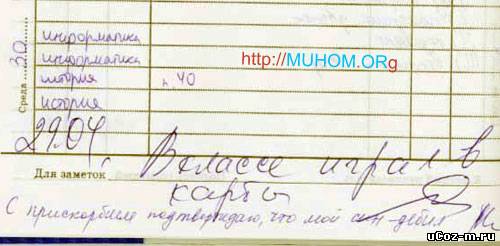 Среда 30
информатика
информатика
история п. 40
история
http://MUHOM.ORg
29.04. В классе играл в
Для заметок карты
С прискорбием подтверждаю, что мой сын-дебил
uCoz-m.ru